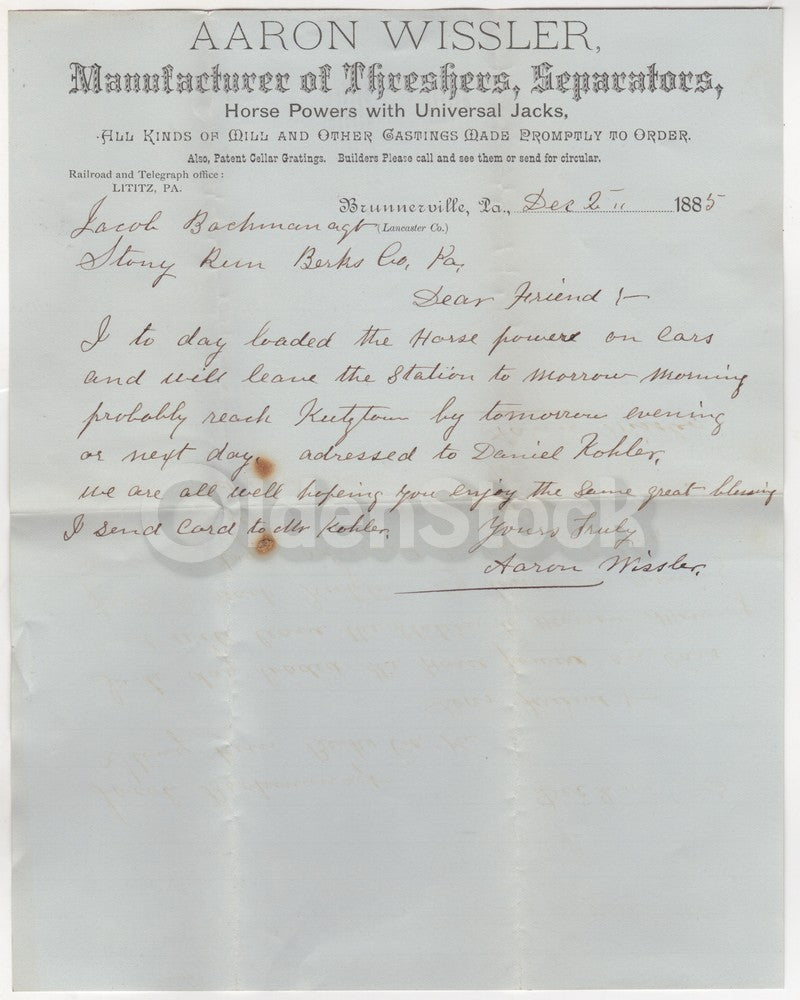 AARON WISSLER,
Manufacturer of Threshers, Separators,
Horse Powers with Universal Jacks,
ALL KINDS OF MILL AND OTHER CASTINGS MADE PROMPTLY TO ORDER.
Also, Patent Cellar Gratings. Builders Please call and see them or send for circular.
Railroad and Telegraph office:
LITITZ, PA.
Brunnerville, Pa., Dec 2 1885
Jacob Bachman agt (Lancaster Co.)
Stony Run Berks Co, Pa,
Dear Friend !—
I to day loaded the Horse powers on Cars
and will leave the Station to morrow morning
probably reach Kutztown by tomorrow evening
or next day. adressed to Daniel Kohler,
we are all well hoping you enjoy the same great blessing
I send Card to Mr Kohler. Yours Truly
Aaron Wissler,
OldenStock